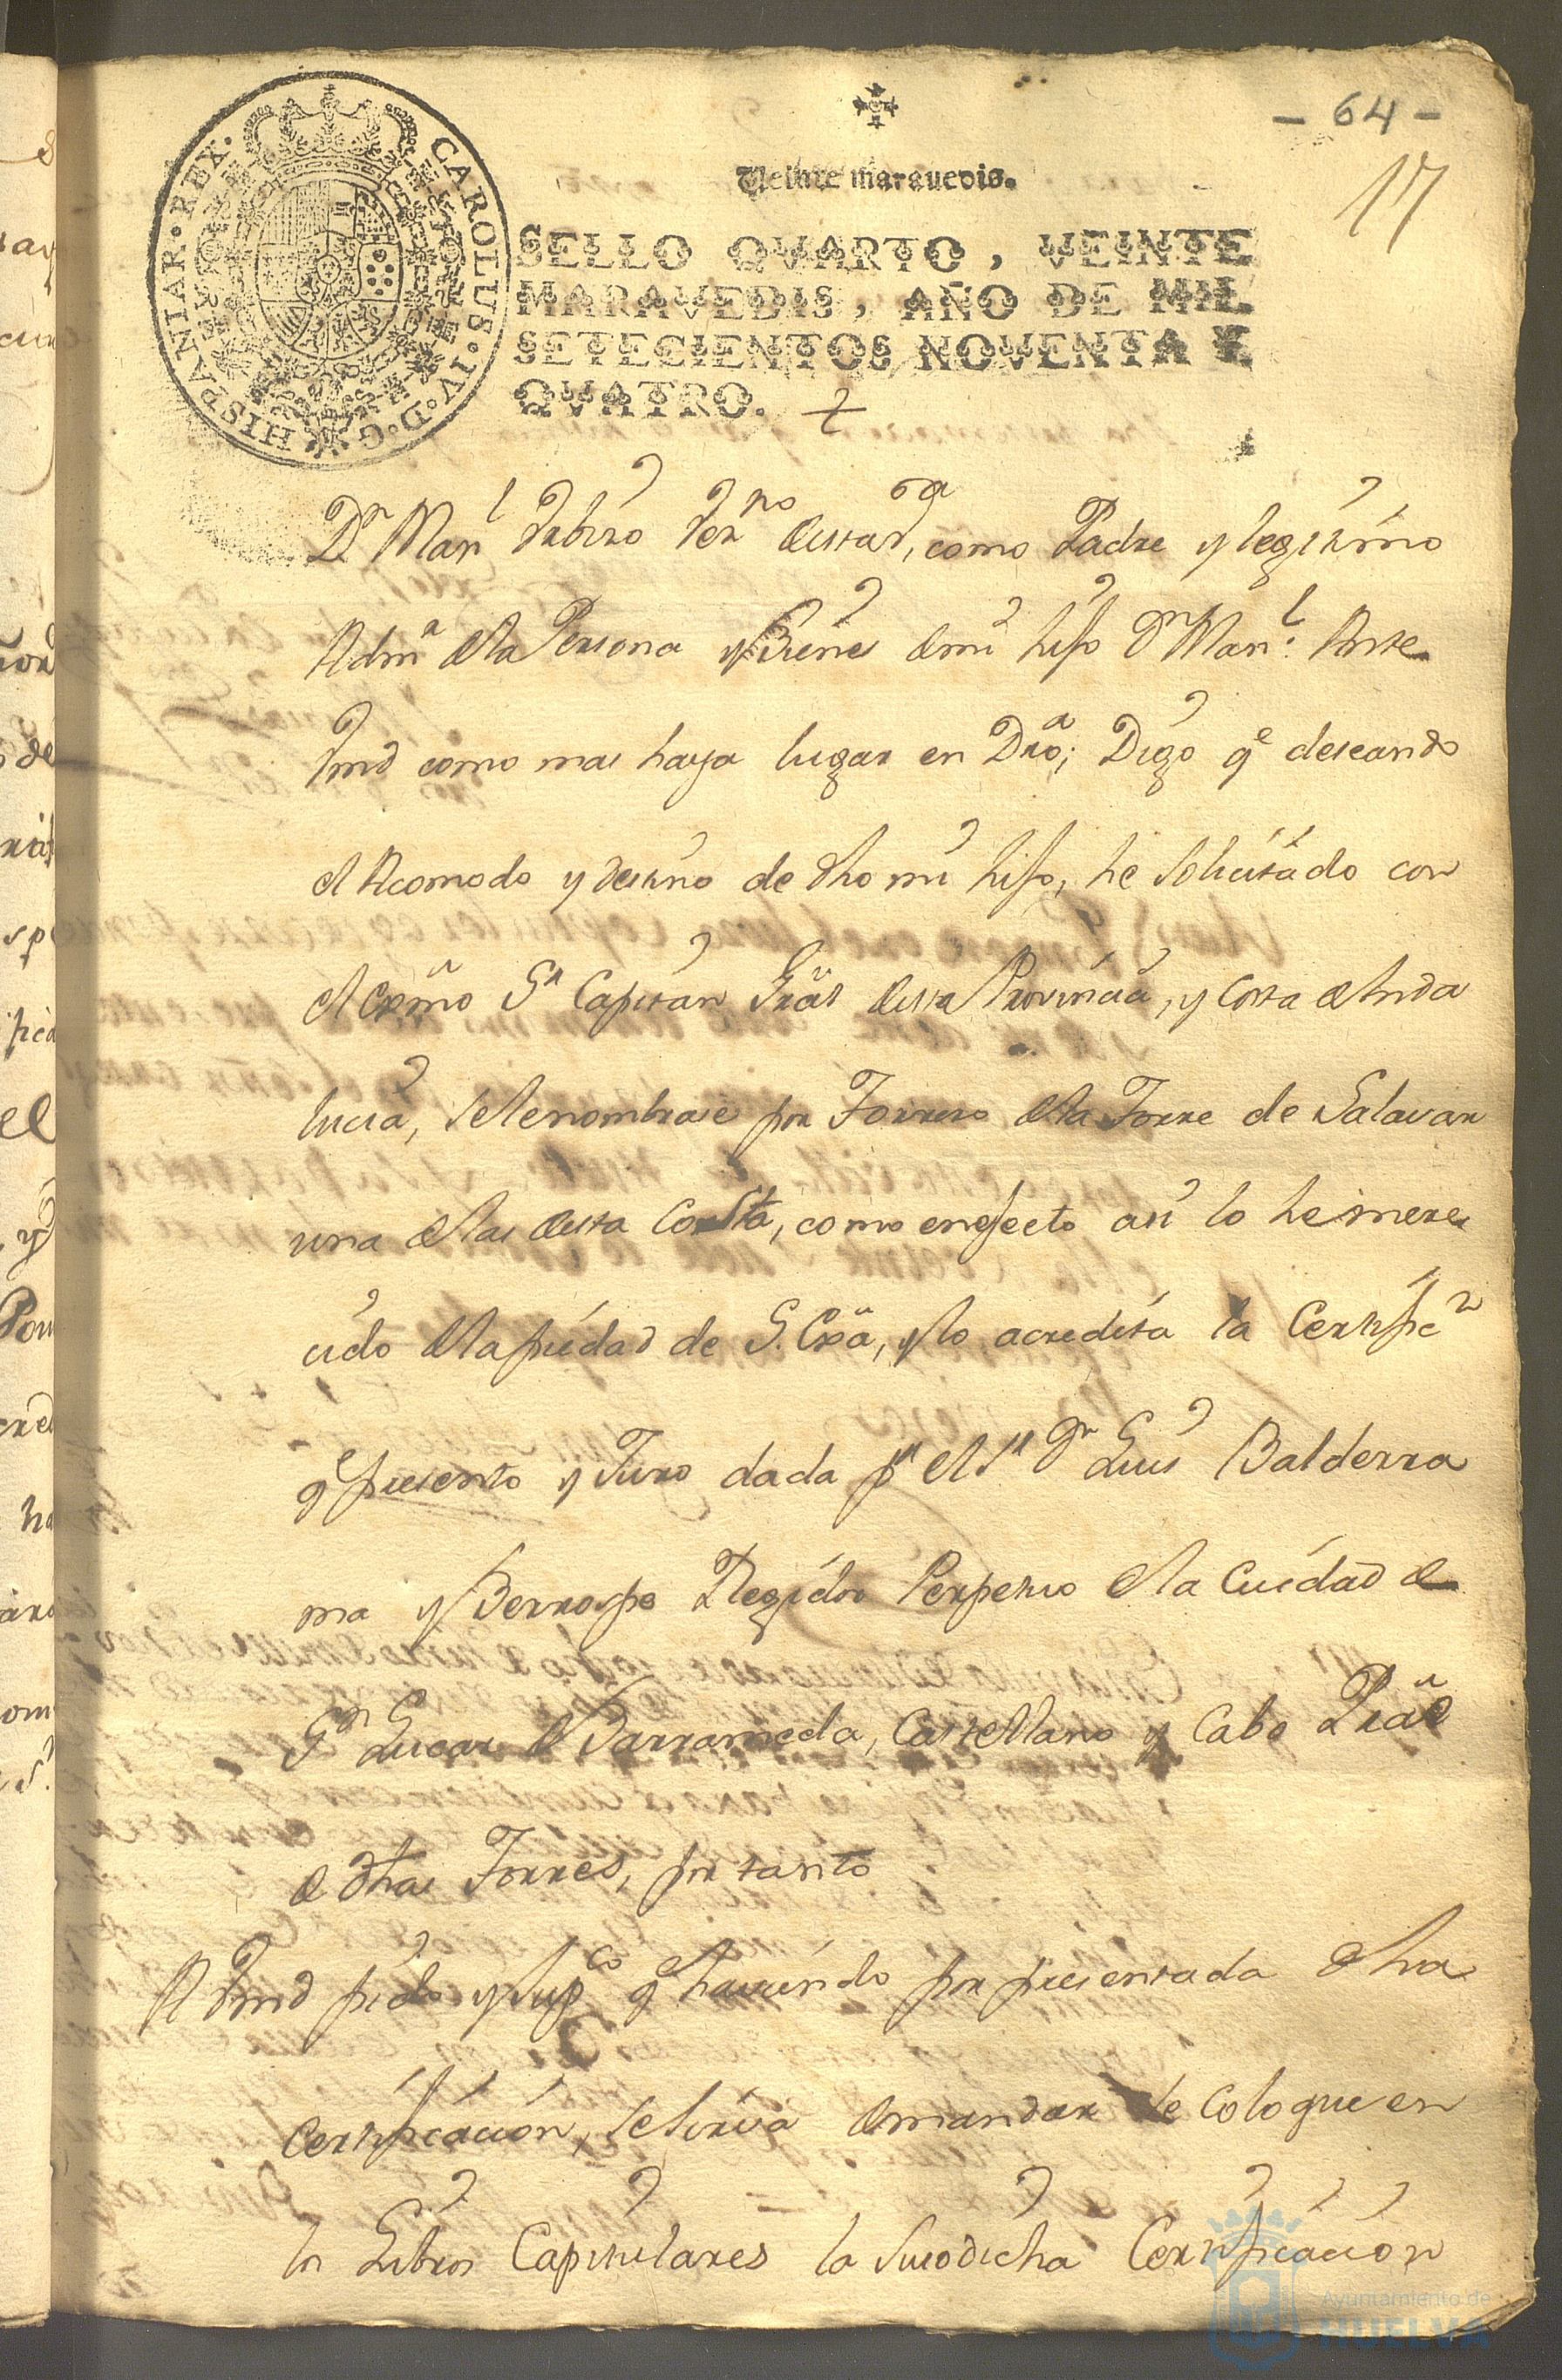 - 64 -
17
Veinte marauedis.
SELLO QVARTO, VEINTE
MARAVEDIS, AÑO DE MIL
SETECIENTOS NOVENTA Y
QVATRO.
CAROLUS·IV·D·G·HISPANIAR·REX·
Dn Manl como Padre y legitimo
Admr dla Persona y Bienes de mi hijo Dn Manl. Ante
Vmd como mas haya lugar en Dro; Digo qe deseando
el Acomodo y destino de dho mi hijo, he solicitado con
el Exmo Sr Capitan Gral desta Provincia, y Costa de Anda
lucia, sele nombrase por Torrero dela Torre de Salavar
una delas desta Costa, como en efecto asi lo he mere
cido dela piedad de S. Exa, y lo acredita la Certificn
qe presento y Juro dada pr el Sr Dn Luis Balderra
ma y Berrospe Regidor Perpetuo dela Ciudad de
Sn Lucar de Barrameda, Castellano y Cabo Pral
de dhas Torres, por tanto
A Vmd pido y supco qe haviendo por presentada dha
Certificacion, se sirva de mandar se coloque en
los Libros Capitulares la susodicha Certificacion
Ayuntamiento de
HUELVA